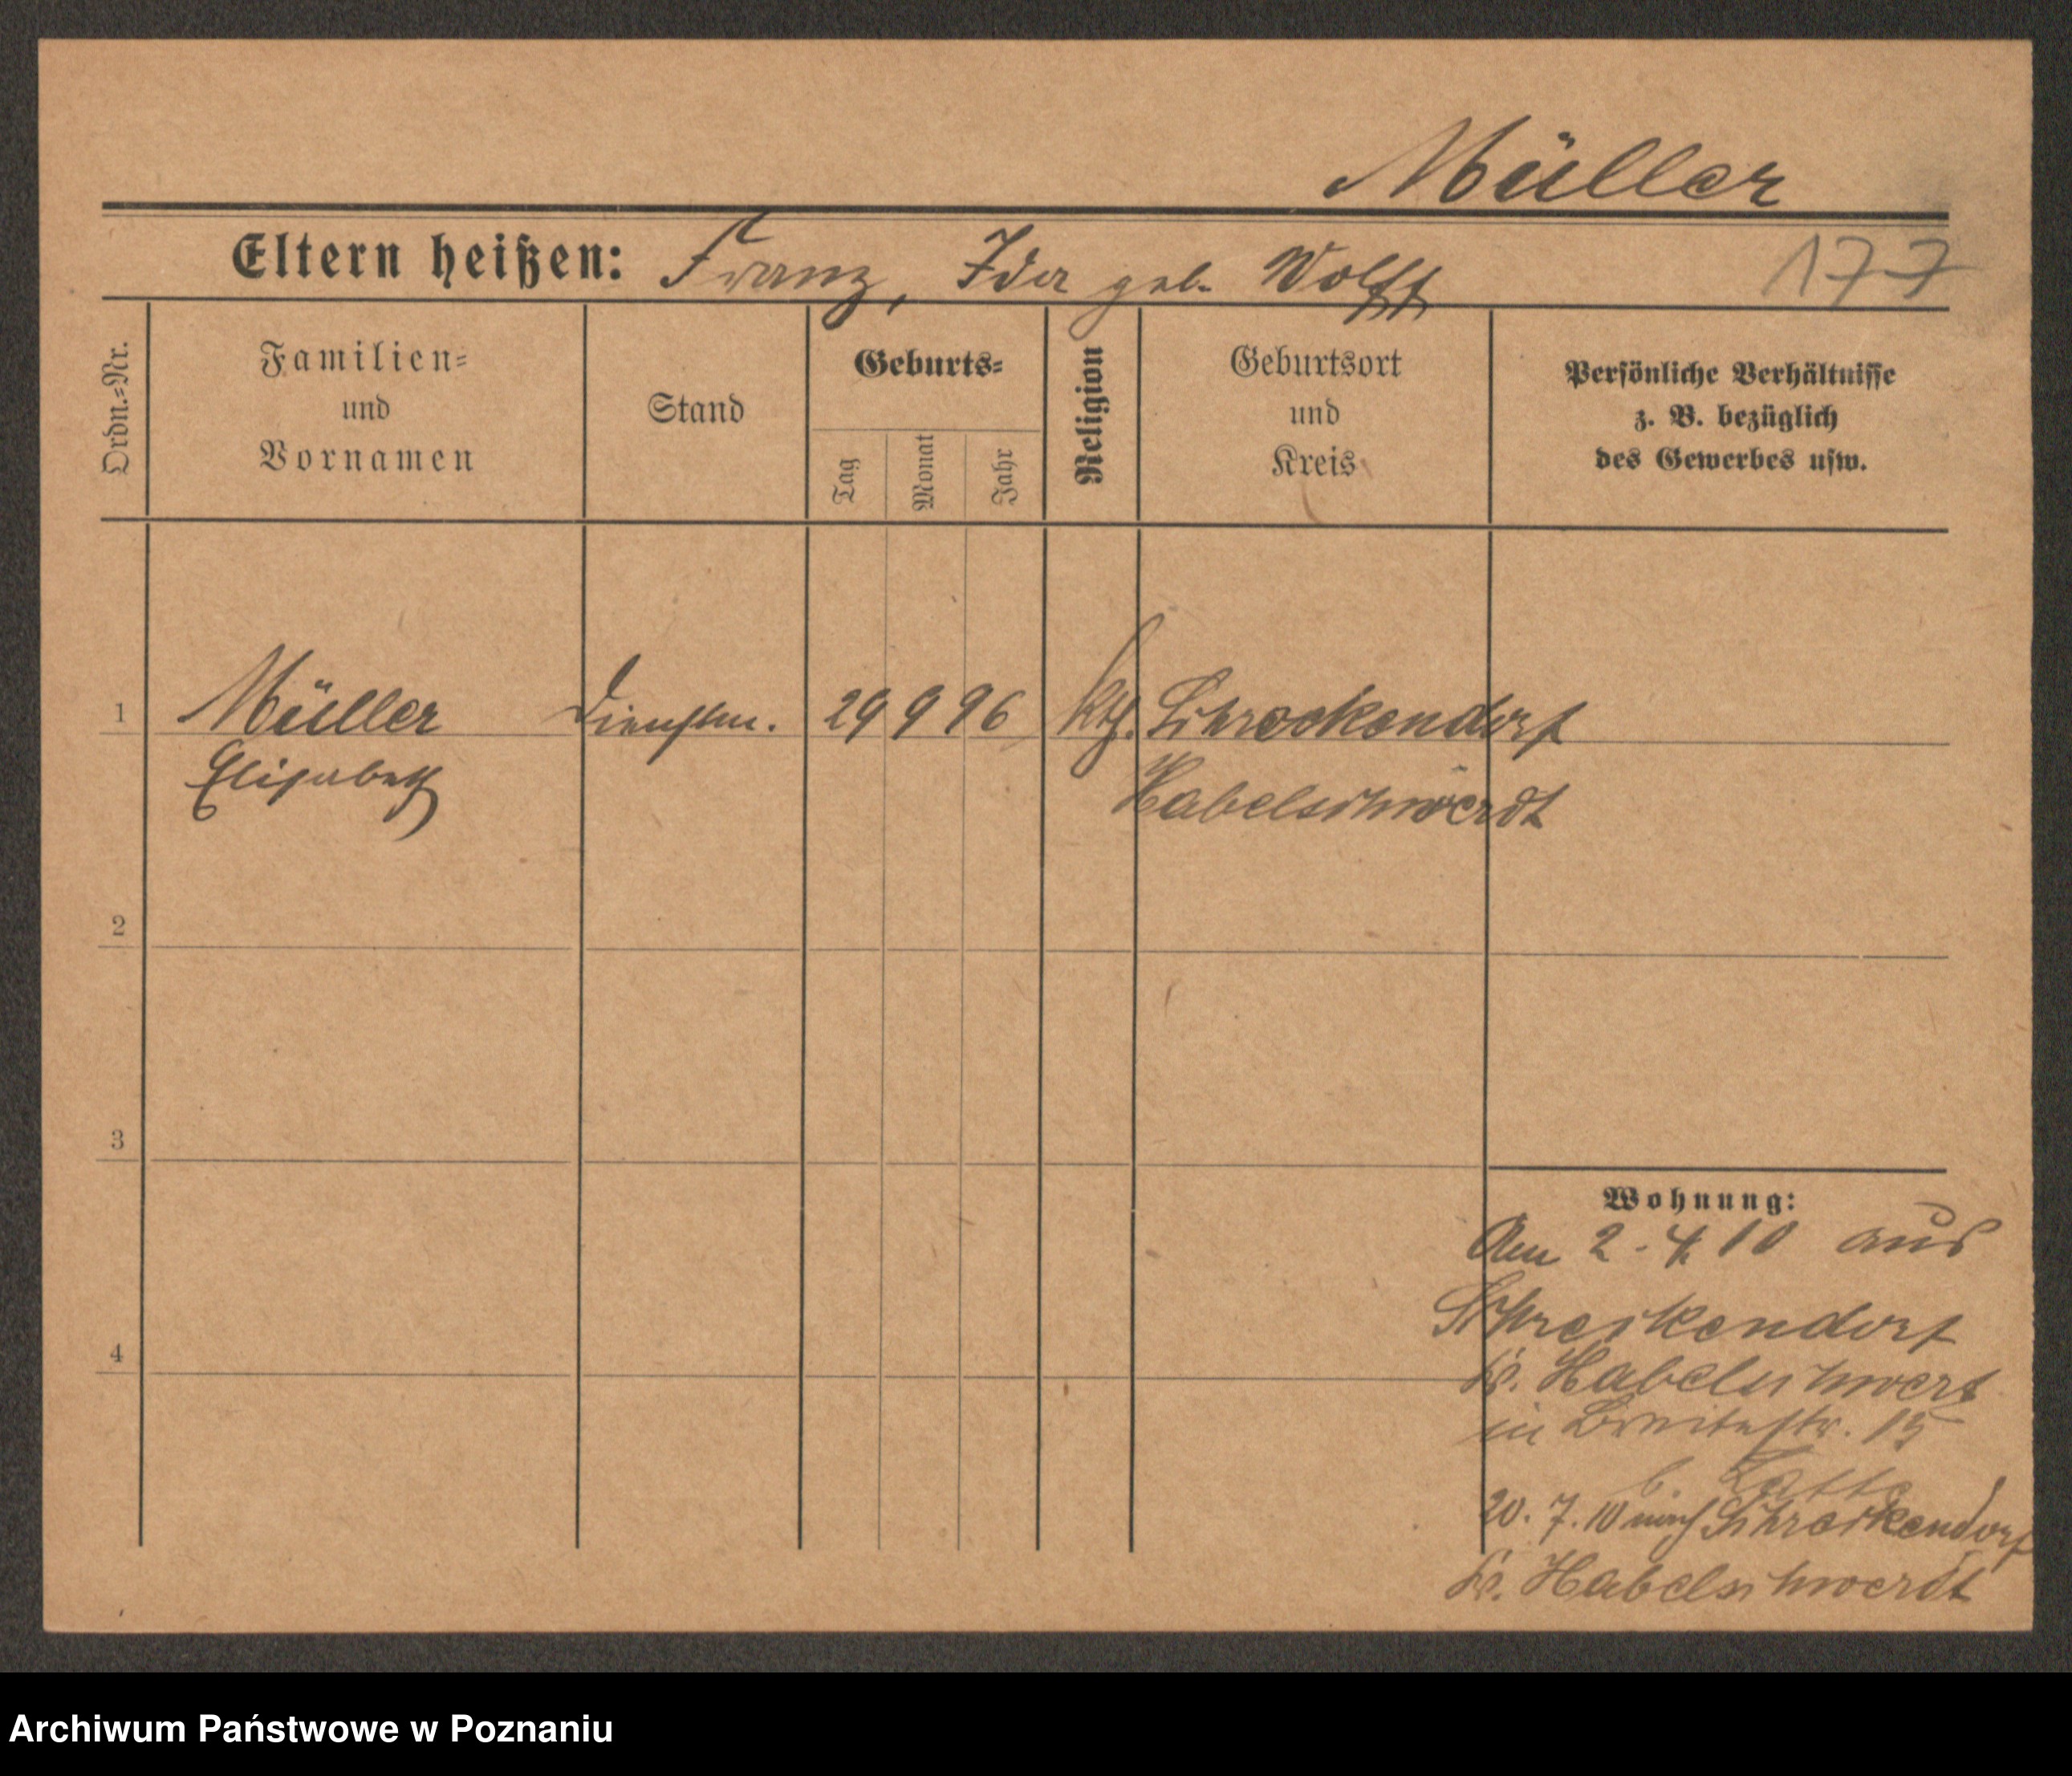 Müller
Eltern heißen: Franz, Ida geb. Wolff
177
Ordn.=Nr.
Familien=
und
Vornamen
Stand
Geburts=
Tag
Monat
Jahr
Religion
Geburtsort
und
Kreis
Persönliche Verhältnisse
z. B. bezüglich
des Gewerbes usw.
1 Müller Dienstm. 29 9 96 kth. Schreckendorf
Elisabeth Habelschwerdt
2
3
4
Wohnung:
Am 2. 4. 10 aus
Schreckendorf
Kr. Habelschwert
in Breitestr. 15
b.
20. 7. 10 nach Schreckendorf
Kr. Habelschwerdt
Archiwum Państwowe w Poznaniu